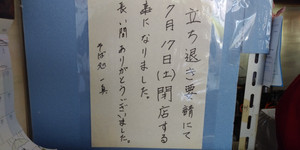 立ち退き要請にて
7月17日(土)閉店する
事になりました。
長い間ありがとうございました。